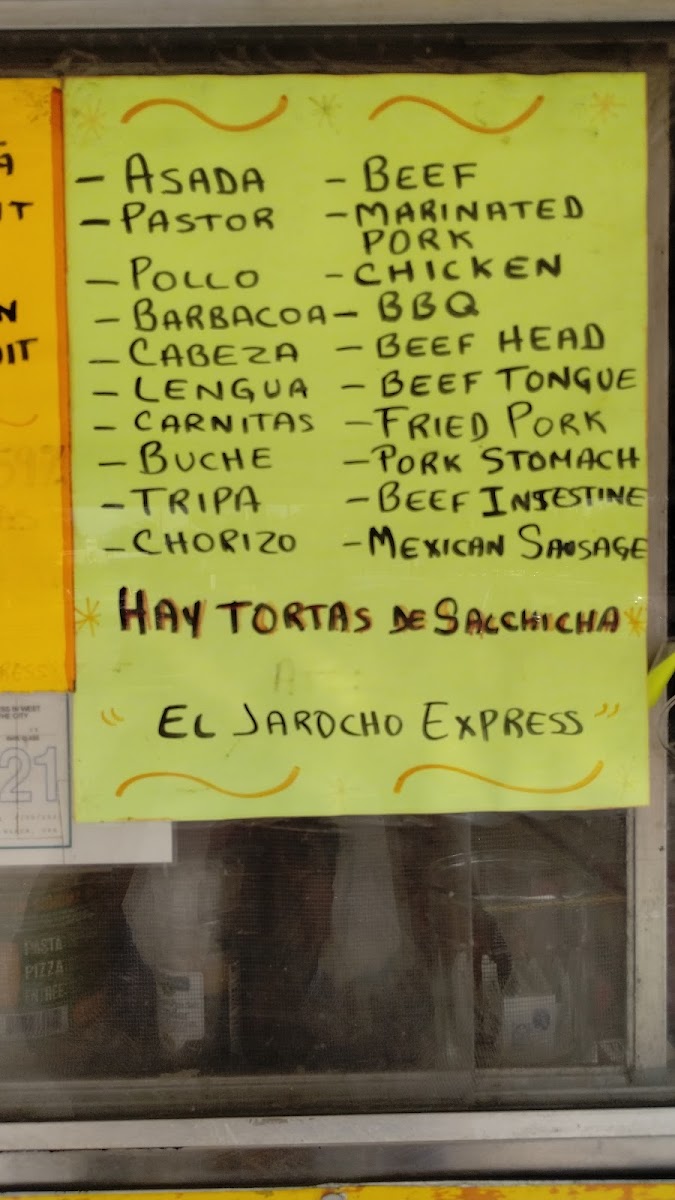 - ASADA - BEEF
- PASTOR - MARINATED
PORK
- POLLO - CHICKEN
- BARBACOA - BBQ
- CABEZA - BEEF HEAD
- LENGUA - BEEF TONGUE
- CARNITAS - FRIED PORK
- BUCHE - PORK STOMACH
- TRIPA - BEEF INTESTINE
- CHORIZO - MEXICAN SAUSAGE
HAY TORTAS DE SALCHICHA
"EL JAROCHO EXPRESS"
21
PASTA
PIZZA